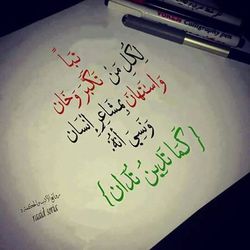 تباً
لِكُلِ مَنْ تَكَبَرَ وَخَان
وَاسْتَهَانَ بِمَشَاعِرِ انْسَان
وَنَسِيَ أَنَّهُ
{ كَمَا تَدِينُ تُدَان }